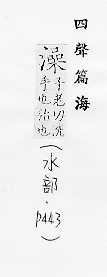 四聲篇海
澡子老切洗
手也治也
(水部．
P443)